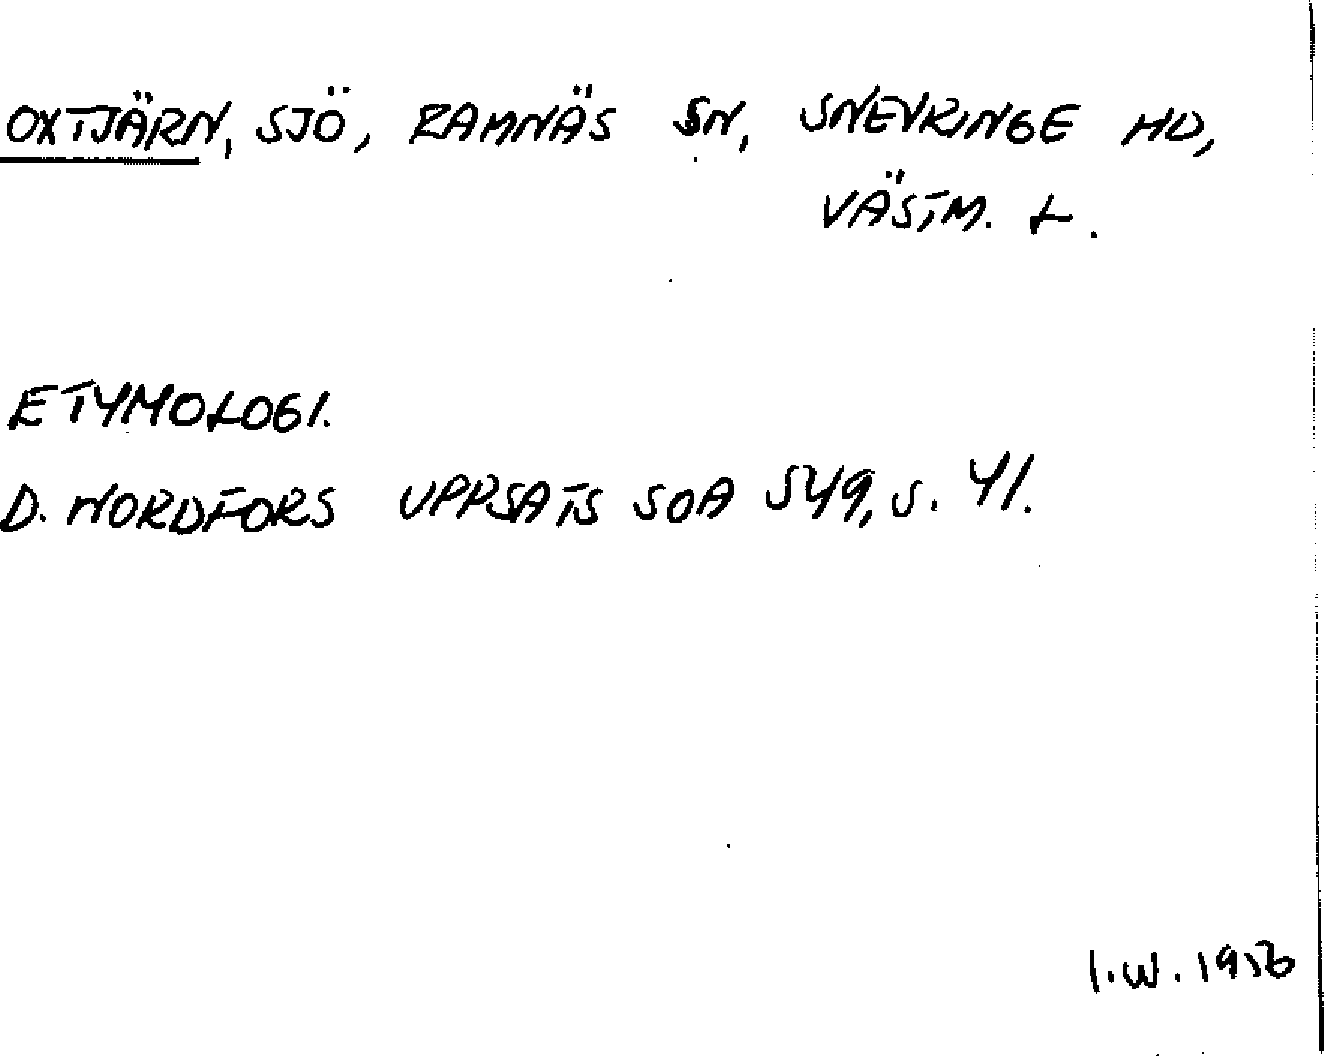 OXTJÄRN, SJÖ, RAMNÄS SN, SNEVRINGE HD,
VÄSTM. L.
ETYMOLOGI.
D. NORDFORS UPPSATS SOA 549, S. 41.
I.W. 1956